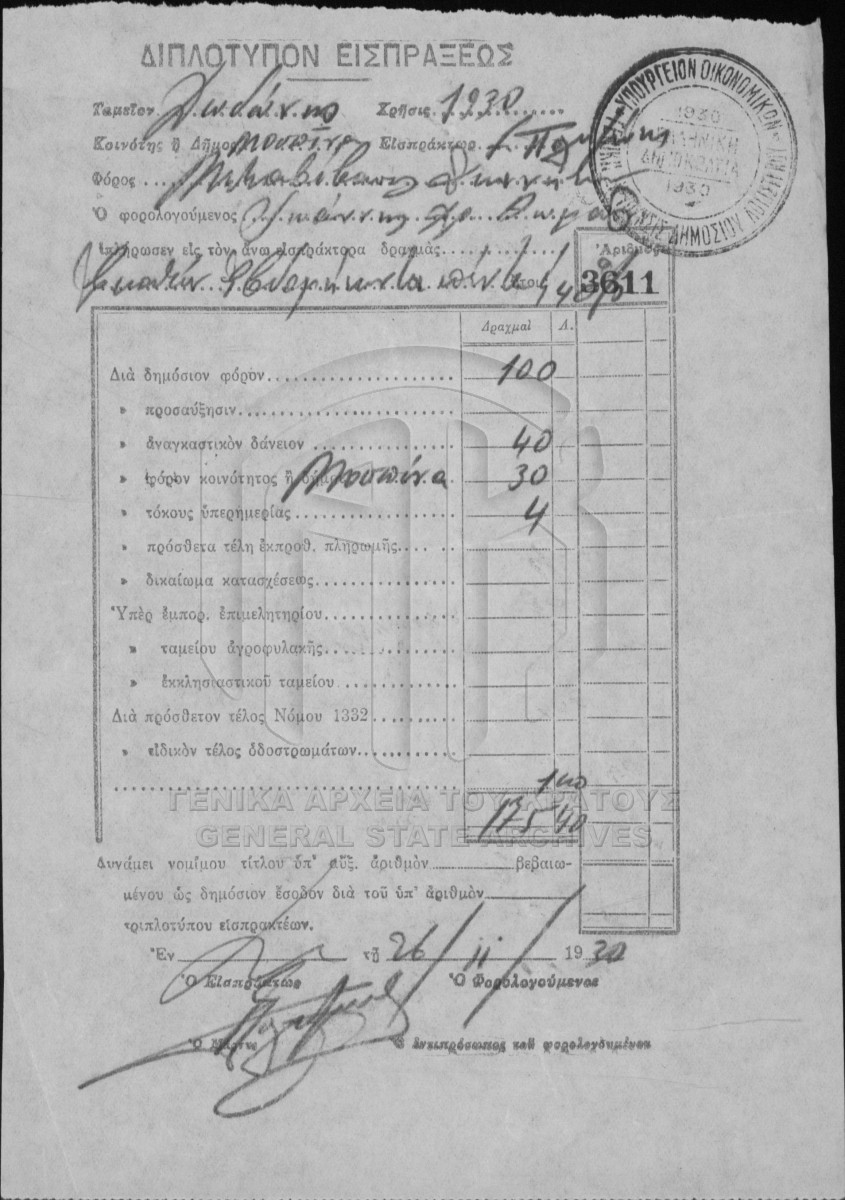 ΔΙΠΛΟΤΥΠΟΝ ΕΙΣΠΡΑΞΕΩΣ
Ταμεῖον Δωδώνης Χρῆσις 1930
Κοινότης ἢ Δῆμος Μοσπίνα Εἰσπράκτωρ
Φόρος
Ὁ φορολογούμενος Ἰωάννης Χρ.
ἐπλήρωσεν εἰς τὸν ἄνω εἰσπράκτορα δραχμὰς
Ἑκατὸν ἑβδομήκοντα πέντε
Ἀριθμὸς
3611
ΥΠΟΥΡΓΕΙΟΝ ΟΙΚΟΝΟΜΙΚΩΝ
ΔΗΜΟΣΙΟΥ ΛΟΓΙΣΤΙΚΟΥ
1930
ΕΛΛΗΝΙΚΗ
ΔΗΜΟΚΡΑΤΙΑ
1930
Δραχμαὶ Λ.
Διὰ δημόσιον φόρον 100
» προσαύξησιν
» ἀναγκαστικὸν δάνειον 40
» φόρον κοινότητος ἢ δήμου Μοσπίνα 30
» τόκους ὑπερημερίας 4
» πρόσθετα τέλη ἐκπροθ. πληρωμῆς
» δικαίωμα κατασχέσεως
Ὑπὲρ ἐμπορ. ἐπιμελητηρίου
» ταμείου ἀγροφυλακῆς
» ἐκκλησιαστικοῦ ταμείου
Διὰ πρόσθετον τέλος Νόμου 1332
» εἰδικὸν τέλος ὁδοστρωμάτων
1 40
ΓΕΝΙΚΑ ΑΡΧΕΙΑ ΤΟΥ ΚΡΑΤΟΥΣ
175 40
GENERAL STATE ARCHIVES
Δυνάμει νομίμου τίτλου ὑπ' αὔξ. ἀριθμὸν βεβαιω-
μένου ὡς δημόσιον ἔσοδον διὰ τοῦ ὑπ' ἀριθμὸν
τριπλοτύπου εἰσπρακτέων.
Ἐν τῇ 26/11/1930
Ὁ Εἰσπράκτωρ Ὁ Φορολογούμενος
Ὁ ἀντιπρόσωπος τοῦ φορολογουμένου